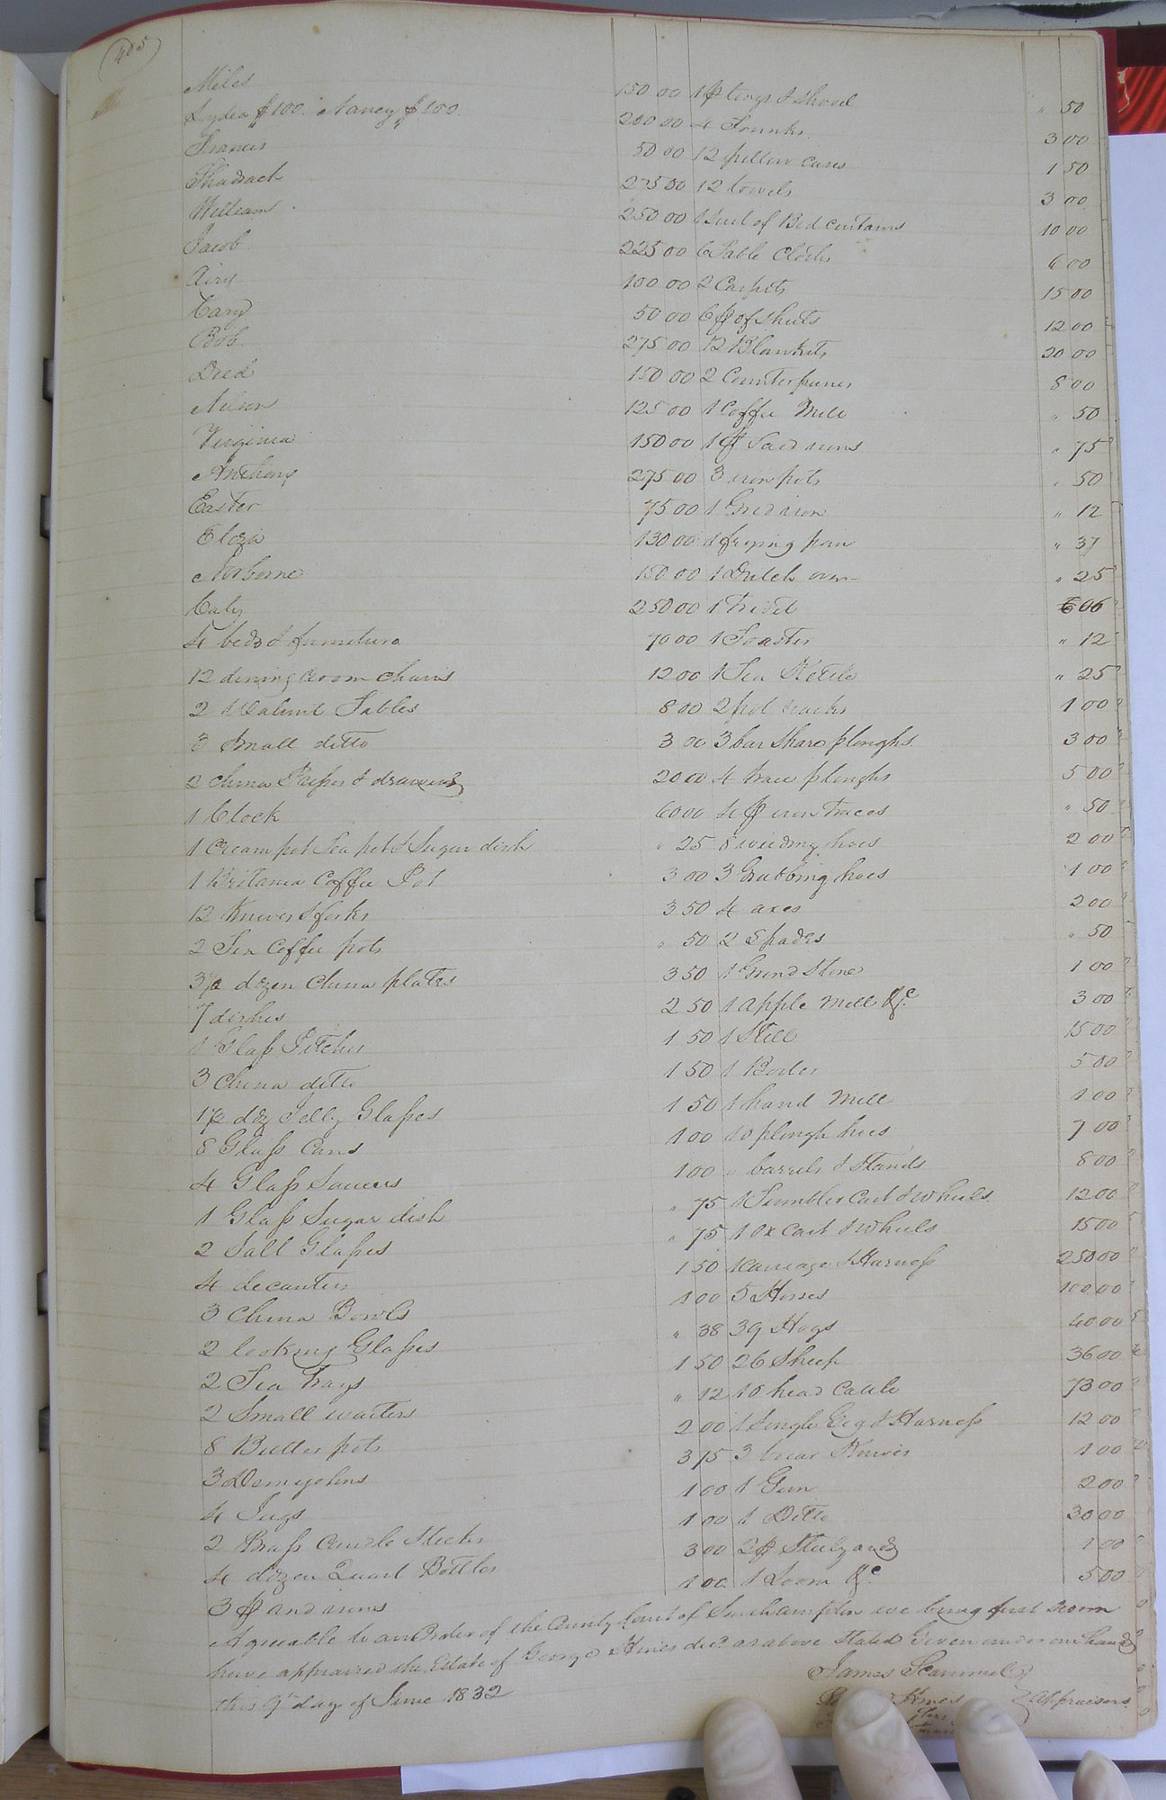 405
Miles 150 00 1 pr tongs & shovel " 50
Lydia $100. Nancy $100. 200 00 4 Trunks 3 00
Francis 50 00 12 pillow cases 1 50
Shadrack 275 00 12 towels 3 00
William 250 00 1 Suit of Bed curtains 10 00
Jacob 225 00 6 Table Cloths 6 00
Airy 100 00 2 Carpets 15 00
Cary 50 00 6 pr of sheets 12 00
Bob 275 00 12 Blankets 20 00
Dred 150 00 2 Counterpanes 8 00
Nelson 125 00 1 Coffee Mill " 50
Virginia 150 00 1 pr Sad irons " 75
Anthony 275 00 3 iron pots " 50
Easter 75 00 1 Gridiron " 12
Eliza 130 00 1 frying pan " 37
Norborne 150 00 1 Dutch oven " 25
Caty 250 00 1 Trivet 06
4 beds & furniture 70 00 1 Toaster " 12
12 dining room chairs 12 00 1 Tea Kettle " 25
2 Walnut Tables 8 00 2 pot racks 1 00
3 Small ditto 3 00 3 bar share ploughs 3 00
2 china Presses & drawers 20 00 4 trace ploughs 5 00
1 Clock 60 00 4 pr iron traces " 50
1 Cream pot Tea pot & Sugar dish " 25 8 weeding hoes 2 00
1 Britania Coffee Pot 3 00 3 Grubbing hoes 1 00
12 Knives & forks 3 50 4 axes 2 00
2 Tin Coffee pots " 50 2 Spades " 50
3 1/2 dozen China plates 3 50 1 Grind Stone 1 00
7 dishes 2 50 1 apple Mill &c 3 00
1 Glass Pitcher 1 50 1 Still 15 00
3 China ditto 1 50 1 Boiler 5 00
1 1/2 doz Jelly Glasses 1 50 1 hand Mill 1 00
8 Glass Cans 1 00 10 plough hoes 7 00
4 Glass Saucers 1 00 " barrels & Stands 8 00
1 Glass Sugar dish " 75 1 Tumbler Cart & Wheels 12 00
2 Salt Glasses " 75 1 Ox Cart & Wheels 15 00
4 decanters 1 50 1 Carriage & Harness 250 00
3 China Bowls 1 00 5 Horses 100 00
2 looking Glasses " 38 39 Hogs 40 00
2 Tea Trays 1 50 26 Sheep 36 00
2 Small waiters " 12 18 head Cattle 73 00
8 Butter pots 2 00 1 Single Gig & Harness 12 00
3 Demyjohns 3 75 3 Knives 1 00
4 Jugs 1 00 1 Gun 2 00
2 Brass Candle Sticks 1 00 1 Ditto 30 00
4 dozen Quart Bottles 3 00 2 pr Steelyards 1 00
3 pr andirons 1 00 1 Loom &c 5 00
Agreeable to an Order of the County Court of Southampton we being first sworn
have appraised the Estate of George dec'd as above Stated Given under our hands
this 9th day of June 1832 James Scammel
appraisers